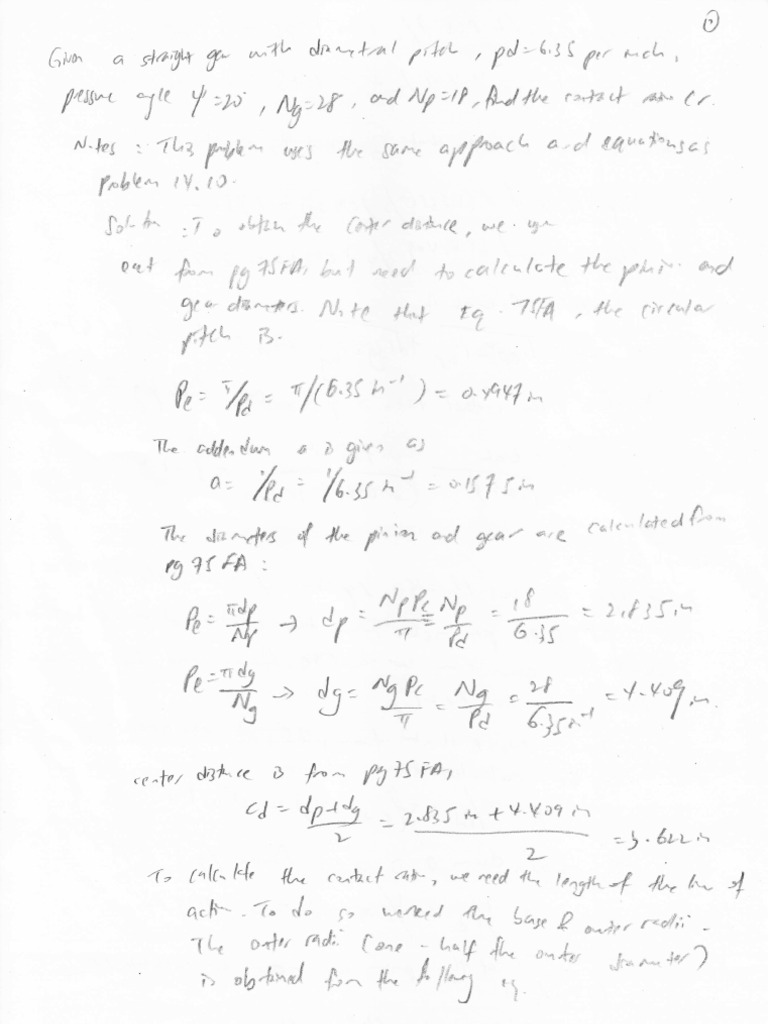 ①
Given a straight gear with diametral pitch, pd=6.35 per inch,
pressure angle ψ=20°, Ng=28, and Np=18, find the contact ratio Cr.
Notes : This problem uses the same approach and equations as
problem 14.10.
Solution : To obtain the center distance, we use
out from pg 75FA, but need to calculate the pinion and
gear diameters. Note that Eq. 75FA, the circular
pitch is.
Pc = π/Pd = π/(6.35 in⁻¹) = 0.4947 in
The addendum a is given as
a = 1/Pd = 1/6.35 in⁻¹ = 0.1575 in
The diameters of the pinion and gear are calculated from
pg 75 FA :
Pc = πdp/Np → dp = NpPc/π = Np/Pd = 18/6.35 = 2.835 in
Pc = πdg/Ng → dg = NgPc/π = Ng/Pd = 28/6.35in⁻¹ = 4.409 in.
center distance is from pg 75 FA,
Cd = dp+dg/2 = 2.835 in + 4.409 in/2 = 3.622 in
To calculate the contact ratio, we need the length of the line of
action. To do so we need the base & outer radii.
The outer radii (one-half the outer diameter)
is obtained from the following eq.